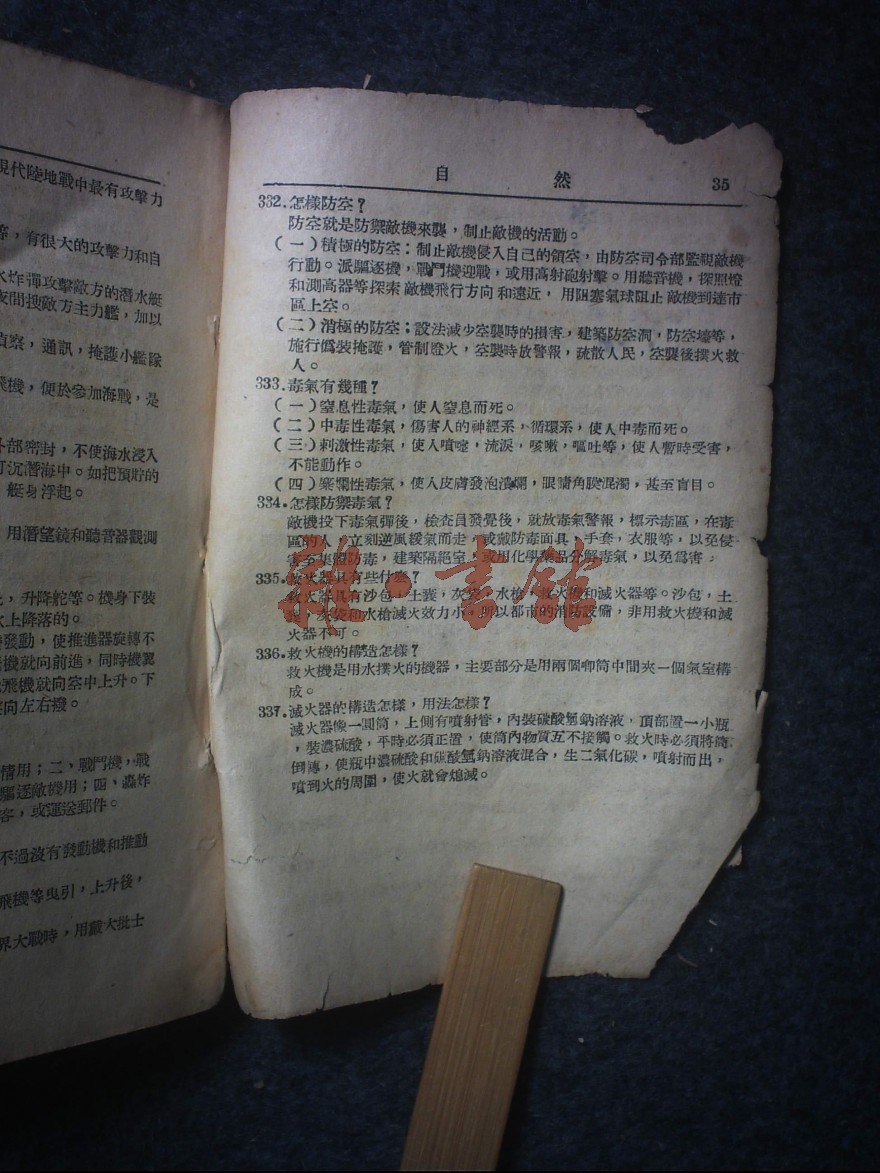 現代陸地戰中最有攻擊力
等，有很大的攻擊力和自
水炸彈攻擊敵方的潛水艇
夜間搜敵方主力艦，加以
偵察，通訊，掩護小艦隊
飛機，便於參加海戰，是
外部密封，不使海水浸入
可沉潛海中。如把預貯的
，艇身浮起。
用潛望鏡和聽音器觀測
，升降舵等。機身下裝
水上降落的。
發動，使推進器旋轉不
機就向前進，同時機翼
飛機就向空中上升。下
向左右撥。
情用；二、戰鬥機，戰
驅逐敵機用；四、轟炸
客，或運送郵件。
不過沒有發動機和推動
飛機等曳引，上升後，
界大戰時，用載大批士
自然 35
332.怎樣防空？
防空就是防禦敵機來襲，制止敵機的活動。
（一）積極的防空：制止敵機侵入自己的領空，由防空司令部監視敵機
行動。派驅逐機，戰鬥機迎戰，或用高射砲射擊。用聽音機，探照燈
和測高器等探索敵機飛行方向和遠近，用阻塞氣球阻止敵機到達市
區上空。
（二）消極的防空；設法減少空襲時的損害，建築防空洞，防空壕等，
施行僞裝掩護，管制燈火，空襲時放警報，疏散人民，空襲後撲火救
人。
333.毒氣有幾種？
（一）窒息性毒氣，使人窒息而死。
（二）中毒性毒氣，傷害人的神經系，循環系，使人中毒而死。
（三）刺激性毒氣，使人噴嚏，流淚，咳嗽，嘔吐等，使人暫時受害，
不能動作。
（四）糜爛性毒氣，使人皮膚發泡潰爛，眼睛角膜混濁，甚至盲目。
334.怎樣防禦毒氣？
敵機投下毒氣彈後，檢查員發覺後，就放毒氣警報，標示毒區，在毒
區的人，立刻逆風緩氣而走，或戴防毒面具，手套，衣服等，以免侵
害至集體防毒，建築隔絕室，或用化學藥品分解毒氣，以免爲害。
335.救火器具有些什麼？
救火器具有沙包，土囊，灰袋，水槍，救火機和滅火器等。沙包，土
，灰袋和水槍滅火效力小，所以都市的消防設備，非用救火機和滅
火器不可。
336.救火機的構造怎樣？
救火機是用水撲火的機器，主要部分是用兩個唧筒中間夾一個氣室構
成。
337.滅火器的構造怎樣，用法怎樣？
滅火器像一圓筒，上側有噴射管，內裝碳酸氫鈉溶液，頂部置一小瓶
，裝濃硫酸，平時必須正置，使筒內物質互不接觸。救火時必須將筒
倒轉，使瓶中濃硫酸和碳酸氫鈉溶液混合，生二氧化碳，噴射而出，
噴到火的周圍，使火就會熄滅。